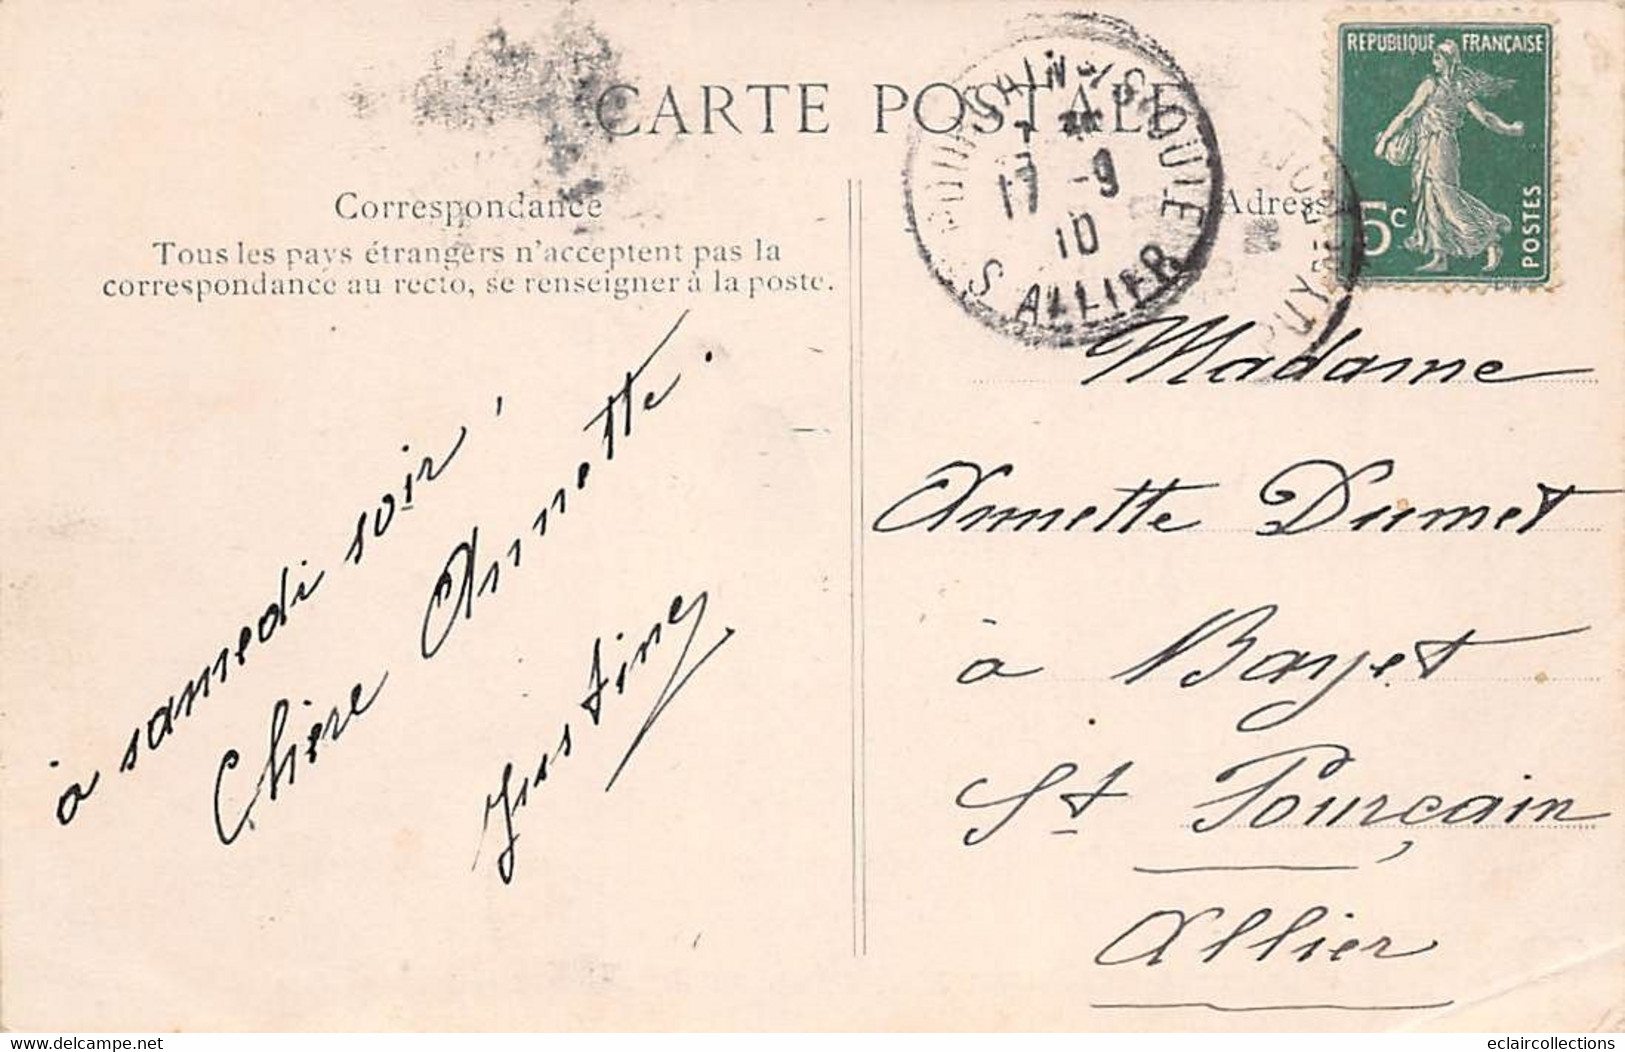 CARTE POSTALE
REPUBLIQUE FRANÇAISE
5c
POSTES
Correspondance
Tous les pays étrangers n'acceptent pas la
correspondance au recto, se renseigner à la poste.
Adresse
17 -9
10
S ALLIER
à samedi soir !
Chère Annette.
Justine
Madame
Annette Dumet
à Bayet
St Pourçain
Allier
delcampe.net
eclaircollections